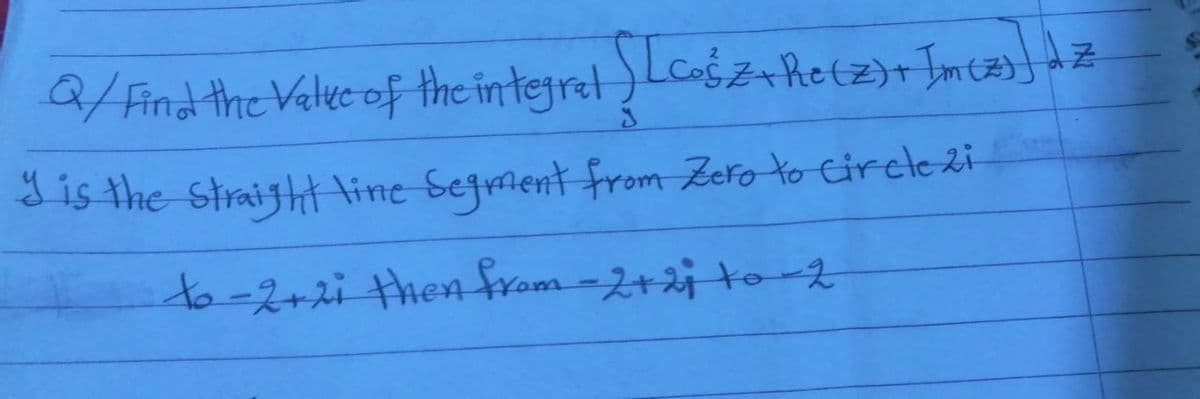 Q/ Find the Value of the integral ∫[cos²z+Re(z)+Im(z)]dz
γ
γ is the straight line segment from Zero to circle 2i
to -2+2i then from -2+2i to -2